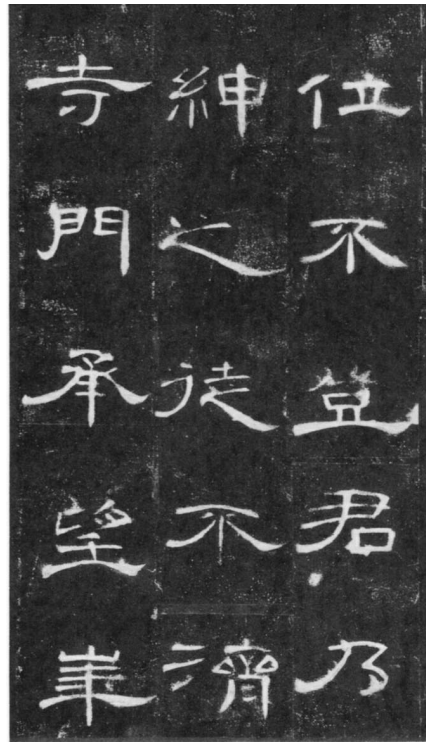 位不登君乃
紳之徒不濟
寺門承望華